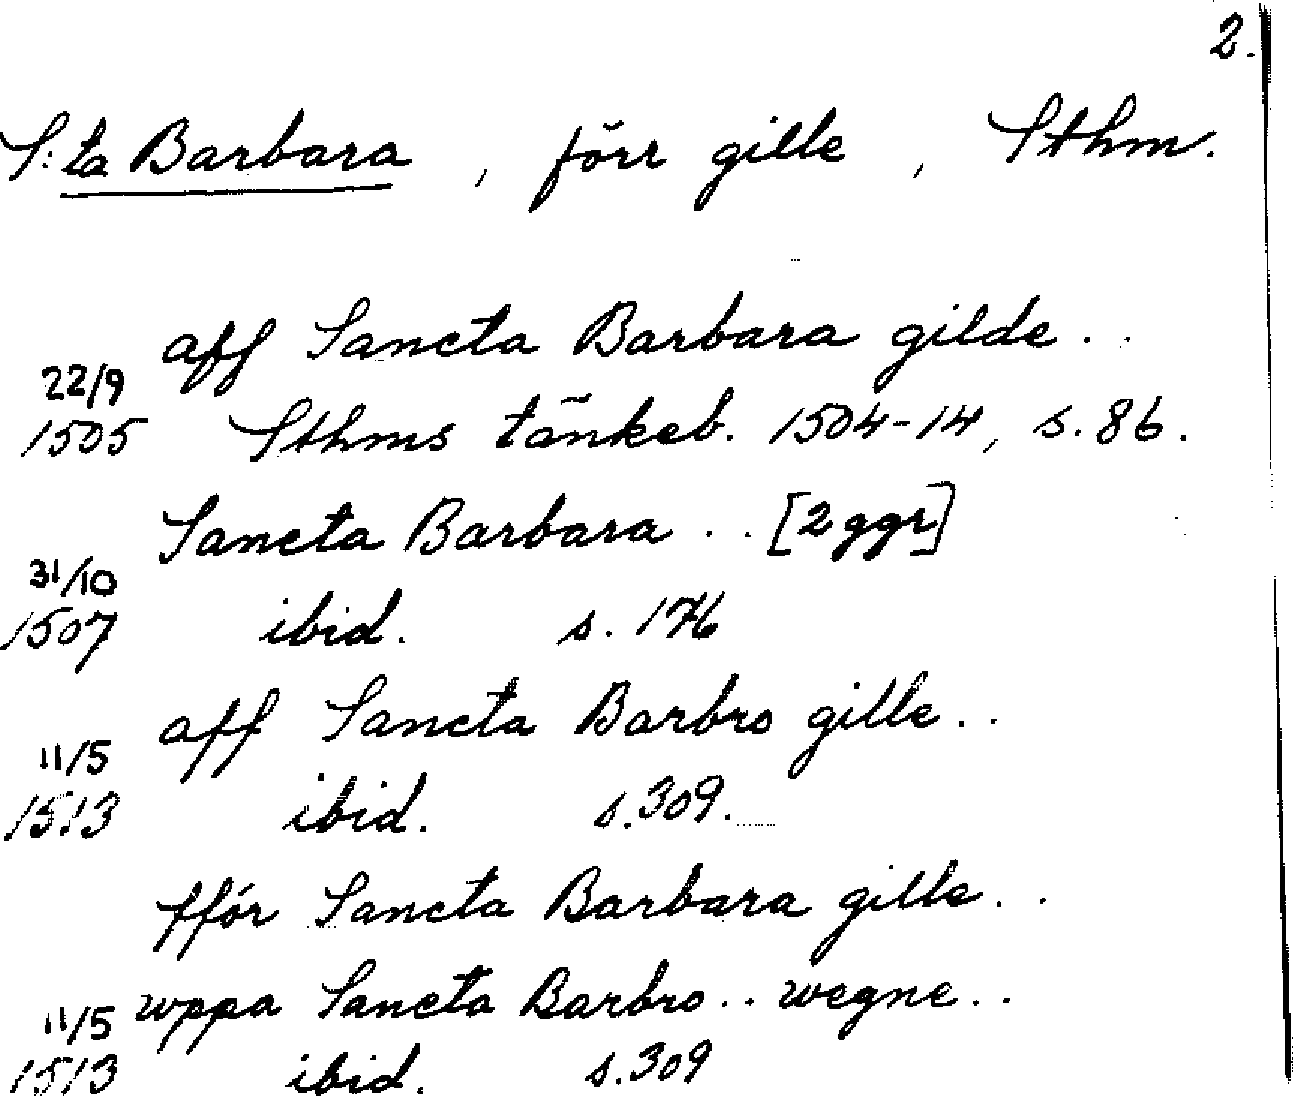 2.
S:ta Barbara, förr gille, Sthm.
aff Sancta Barbara gilde..
22/9
1505 Sthms tänkeb. 1504-14, s. 86.
Sancta Barbara .. [2 ggr]
31/10
1507 ibid. s. 176
aff Sancta Barbro gille..
11/5
1513 ibid. s. 309.
ffór Sancta Barbara gille..
11/5 wppa Sancta Barbro.. wegne..
1513 ibid. s. 309